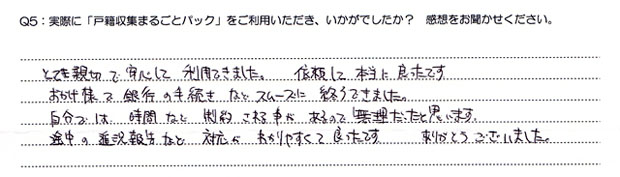 Q5：実際に「戸籍収集まるごとパック」をご利用いただき、いかがでしたか？ 感想をお聞かせください。
とても親切で安心して利用できました。 依頼して本当に良かったです
おかげ様で銀行の手続きなどスムーズに終うできました。
自分では時間など制約される事があるので無理だったと思います。
途中の進況報告など対応がわかりやすくて良かったです ありがとうございました。